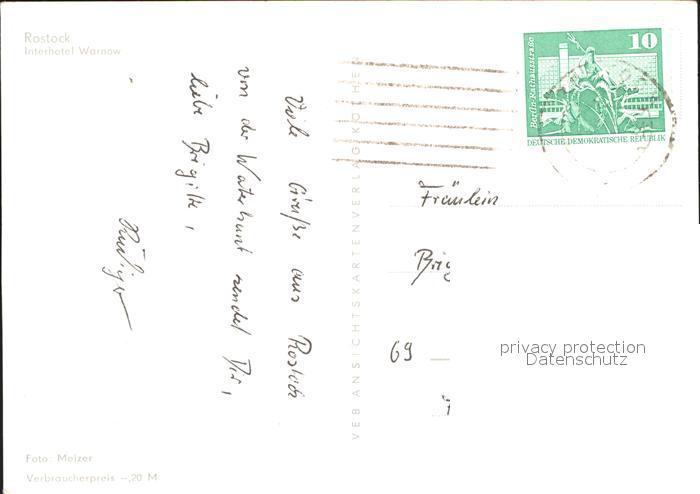 Rostock
Interhotel Warnow
Viele Grüße aus Rostock
von der Waterkant sendet Dir,
liebe Brigitte,
Rüdiger
VEB ANSICHTSKARTENVERLAG KÖTHEN
10
Berlin-Rathausstraße
DEUTSCHE DEMOKRATISCHE REPUBLIK
Fräulein
Brig
69
privacy protection
Datenschutz
Foto: Melzer
Verbraucherpreis -,20 M